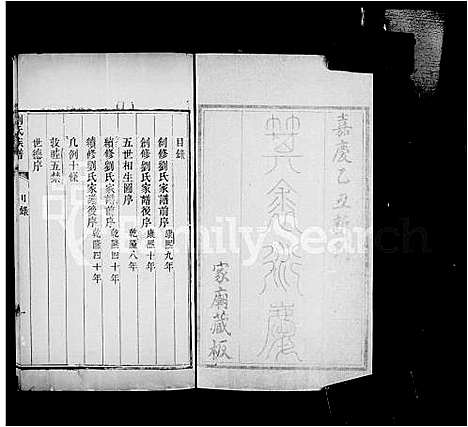 嘉慶乙丑
家廟藏板
目錄
創修劉氏家譜前序 康熙九年
創修劉氏家譜後序 康熙十年
五世相生圖序 乾隆八年
續修劉氏家譜前序 乾隆四十年
續修劉氏家譜後序 乾隆四十年
凡例十條
世德序
目錄
FamilySearch